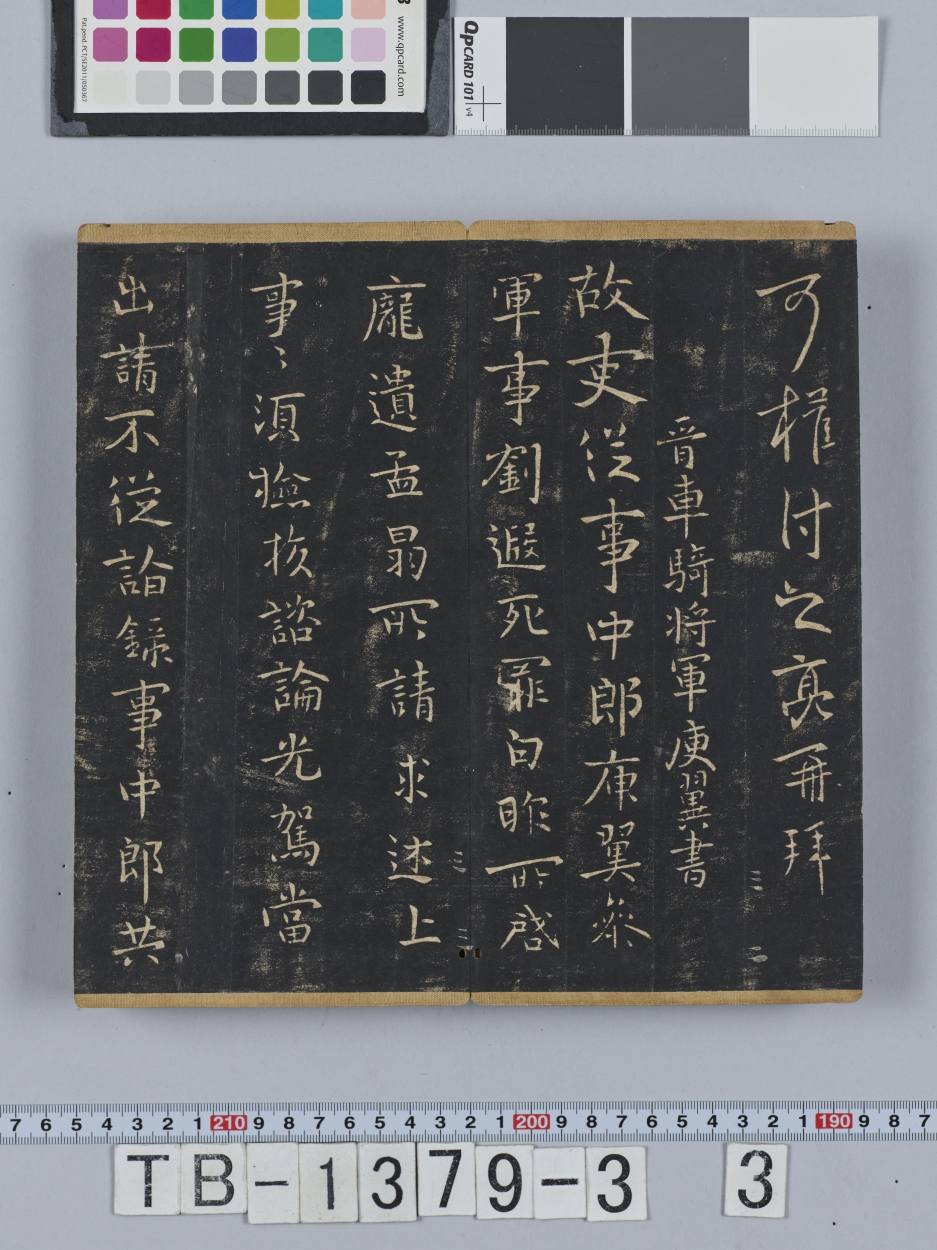 www.qpcard.com
Pat.pend. PCT/SE2011/050367
QPCARD 101 v4
可權付之亮再拜
晉車騎將軍庾翼書
故吏從事中郎庾翼參
軍事劉遐死罪白昨所啓
龐遺孟昺所請求述上
事〻須檢校諮論光駕當
出請不從詣錄事中郎共
7 6 5 4 3 2 1 210 9 8 7 6 5 4 3 2 1 200 9 8 7 6 5 4 3 2 1 190 9 8 7
TB-1379-3 3